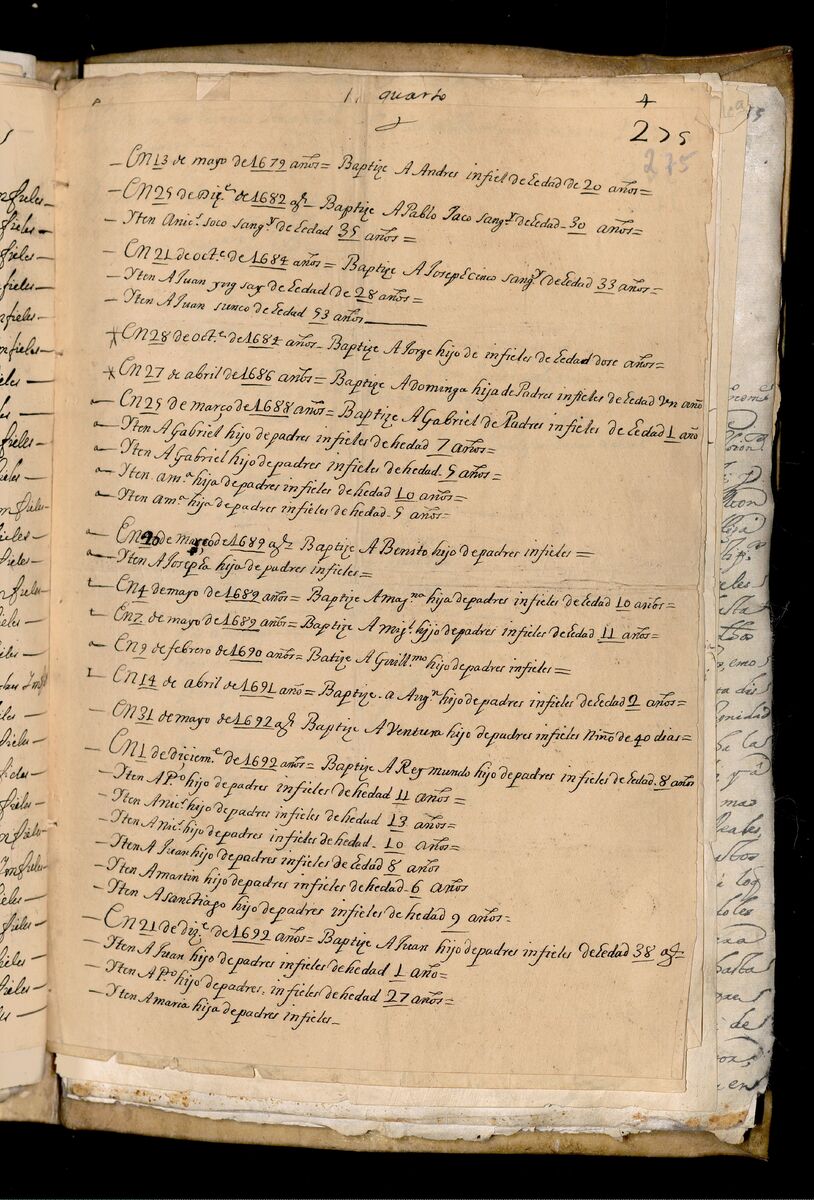 quarto
4
275
275
— En 13 de mayo de 1679 años = Baptize A Andres infiel de Eedad de 20 años =
— En 25 de Diz.e de 1682 as Baptize A Pablo Paco sang.y de Eedad 30 años =
— Yten A nic.s soco sang.y de Eedad 35 años =
— En 21 de oct.e de 1684 años = Baptize A Joseph cinco sang.y de Eedad 33 años =
— Yten A Juan yng say de Eedad de 28 años =
— Yten A Juan sunco de Eedad 53 años
En 28 de oct.e de 1684 años Baptize A Jorge hijo de infieles de Eedad dose años =
En 27 de abril de 1686 años = Baptize A Dominga hija de Padres infieles de Eedad Vn año
— En 25 de março de 1688 años = Baptize A Gabriel de Padres infieles de Eedad 1 año
— Yten A Gabriel hijo de padres infieles de hedad 7 años =
— Yten A Gabriel hijo de padres infieles de hedad 5 años =
— Yten am.a hija de padres infieles de hedad 10 años =
— Yten am.a hija de padres infieles de hedad 5 años =
— En 20 de março de 1689 as Baptize A Benito hijo de padres infieles =
— Yten A Josepha hija de padres infieles =
— En 4 de mayo de 1689 años = Baptize A mag.na hija de padres infieles de Eedad 10 años =
— En 7 de mayo de 1689 años = Baptize A mig.l hijo de padres infieles de Eedad 11 años =
— En 9 de febrero de 1690 años = Batize A Guill.mo hijo de padres infieles =
— En 14 de abril de 1691 año = Baptize a Ang.n hijo de padres infieles de Eedad 2 años =
— En 31 de mayo de 1692 as Baptize A Ventura hijo de padres infieles Niño de 40 dias =
— En 1 de diçiem.e de 1692 años = Baptize A Reymundo hijo de padres infieles de Eedad 8 años
— Yten A P.o hijo de padres infieles de hedad 11 años =
— Yten A nic.s hijo de padres infieles de hedad 13 años =
— Yten A nic.s hijo de padres infieles de hedad 10 años =
— Yten A Juan hijo de padres infieles de Eedad 8 años
— Yten A martin hijo de padres infieles de hedad 6 años
— Yten A sanctiago hijo de padres infieles de hedad 9 años =
— En 21 de diz.e de 1692 años = Baptize A Juan hijo de padres infieles de Eedad 38 as
— Yten A Juan hijo de padres infieles de hedad 1 año =
— Yten A P.o hijo de padres infieles de hedad 27 años =
— Yten A maria hija de padres infieles